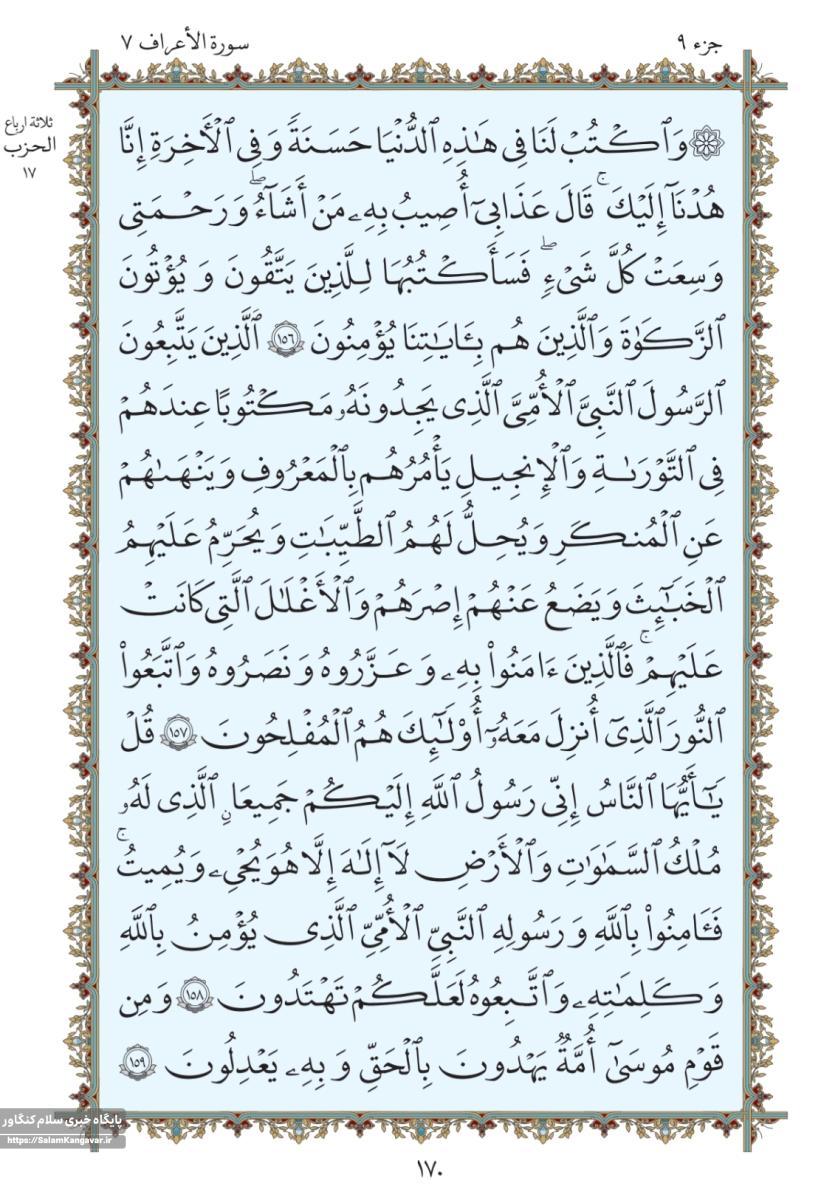 جزء ۹
سورة الأعراف ۷
ثلاثة ارباع
الحزب
۱۷
۞ وَٱكْتُبْ لَنَا فِى هَٰذِهِ ٱلدُّنْيَا حَسَنَةً وَفِى ٱلْأَخِرَةِ إِنَّا
هُدْنَآ إِلَيْكَ ۚ قَالَ عَذَابِىٓ أُصِيبُ بِهِۦ مَنْ أَشَآءُ ۖ وَرَحْمَتِى
وَسِعَتْ كُلَّ شَىْءٍ ۖ فَسَأَكْتُبُهَا لِلَّذِينَ يَتَّقُونَ وَ يُؤْتُونَ
ٱلزَّكَوٰةَ وَٱلَّذِينَ هُم بِـَٔايَٰتِنَا يُؤْمِنُونَ ۝۱۵۶ ٱلَّذِينَ يَتَّبِعُونَ
ٱلرَّسُولَ ٱلنَّبِىَّ ٱلْأُمِّىَّ ٱلَّذِى يَجِدُونَهُۥ مَكْتُوبًا عِندَهُمْ
فِى ٱلتَّوْرَىٰةِ وَٱلْإِنجِيلِ يَأْمُرُهُم بِٱلْمَعْرُوفِ وَيَنْهَىٰهُمْ
عَنِ ٱلْمُنكَرِ وَيُحِلُّ لَهُمُ ٱلطَّيِّبَٰتِ وَيُحَرِّمُ عَلَيْهِمُ
ٱلْخَبَٰٓئِثَ وَيَضَعُ عَنْهُمْ إِصْرَهُمْ وَٱلْأَغْلَٰلَ ٱلَّتِى كَانَتْ
عَلَيْهِمْ ۚ فَٱلَّذِينَ ءَامَنُوا۟ بِهِۦ وَ عَزَّرُوهُ وَ نَصَرُوهُ وَٱتَّبَعُوا۟
ٱلنُّورَ ٱلَّذِىٓ أُنزِلَ مَعَهُۥٓ أُو۟لَٰٓئِكَ هُمُ ٱلْمُفْلِحُونَ ۝۱۵۷ قُلْ
يَٰٓأَيُّهَا ٱلنَّاسُ إِنِّى رَسُولُ ٱللَّهِ إِلَيْكُمْ جَمِيعًا ٱلَّذِى لَهُۥ
مُلْكُ ٱلسَّمَٰوَٰتِ وَٱلْأَرْضِ لَآ إِلَٰهَ إِلَّا هُوَ يُحْىِۦ وَيُمِيتُ ۚ
فَـَٔامِنُوا۟ بِٱللَّهِ وَ رَسُولِهِ ٱلنَّبِىِّ ٱلْأُمِّىِّ ٱلَّذِى يُؤْمِنُ بِٱللَّهِ
وَكَلِمَٰتِهِۦ وَٱتَّبِعُوهُ لَعَلَّكُمْ تَهْتَدُونَ ۝۱۵۸ وَمِن
قَوْمِ مُوسَىٰٓ أُمَّةٌ يَهْدُونَ بِٱلْحَقِّ وَ بِهِۦ يَعْدِلُونَ ۝۱۵۹
پایگاه خبری سلام کنگاور
https://SalamKangavar.ir
۱۷۰